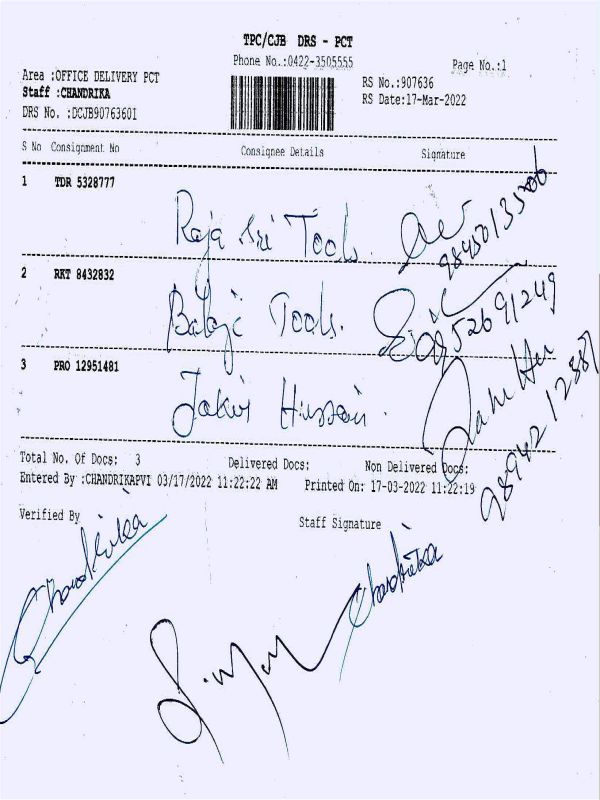 TPC/CJB DRS - PCT
Phone No.:0422-3505555
Page No.:1
Area :OFFICE DELIVERY PCT
RS No.:907636
Staff :CHANDRIKA
RS Date:17-Mar-2022
DRS No. :DCJB9076360I
S No Consignment No Consignee Details Signature
1 TDR 5328777
Raja Sri Tools.
2 RKT 8432832
Balaji Tools.
9952691249
3 PRO 12951481
Jakir Hussain.
Total No. Of Docs: 3 Delivered Docs: Non Delivered Docs:
Entered By :CHANDRIKAPVI 03/17/2022 11:22:22 AM Printed On: 17-03-2022 11:22:19
Verified By
Staff Signature
Chandrika
Chandrika